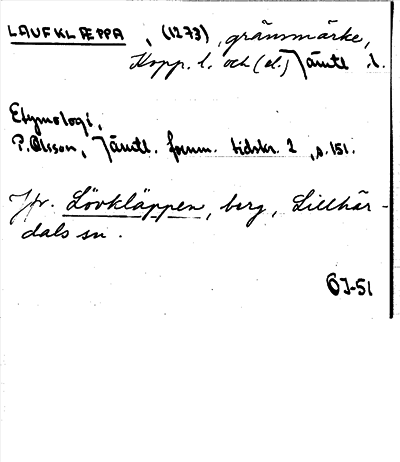 LAUFKLÆPPA, (1273), gränsmärke,
Kopp. l. och (el.) Jämtl. l.
Etymologi,
P. Olsson, Jämtl. fornm. tidskr. 2, s. 151.
Jfr. Lövkläppen, berg, Lillhär-
dals sn.
OJ-51